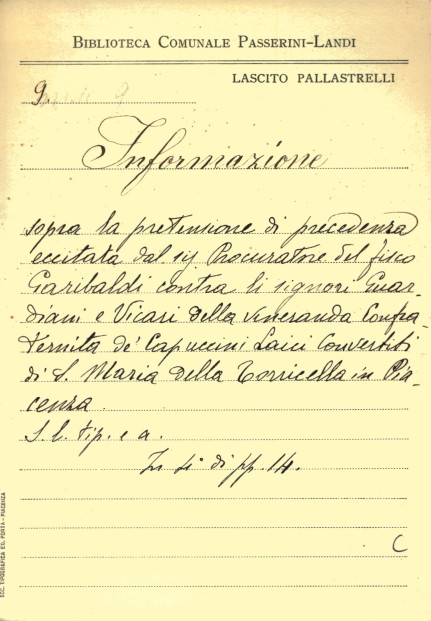 BIBLIOTECA COMUNALE PASSERINI-LANDI
LASCITO PALLASTRELLI
9.
Informazione
sopra la pretensione di precedenza
eccitata dal sig. Procuratore del fisco
Garibaldi contra li signori Guar-
diani e Vicari della veneranda Confra-
ternita de' Capuccini Laici Convertiti
di S. Maria della Torricella in Pia-
cenza.
S. l. tip. e a.
In 4° di pp. 14.
C
SOC. TIPOGRAFICA ED. PORTA - PIACENZA